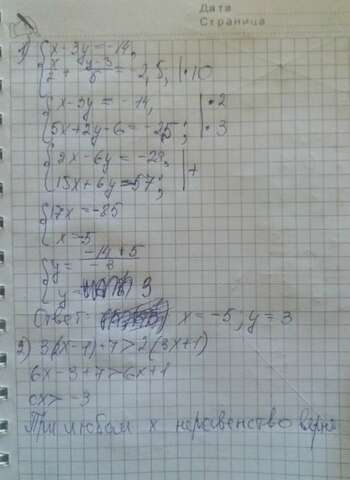 Дата
Страница
1) { x - 3y = -14,
x/2 + (y-3)/5 = -2,5; | · 10
{ x - 3y = -14, | · 2
5x + 2y - 6 = -25; | · 3
{ 2x - 6y = -28,
15x + 6y = -57; | +
{ 17x = -85
x = -5
{ y = (-14 + 5)/(-3)
y = 3
Ответ x = -5; y = 3
2) 3(2x - 1) + 7 > 2(3x + 1)
6x - 3 + 7 > 6x + 1
0x > -3
При любом x неравенство верно